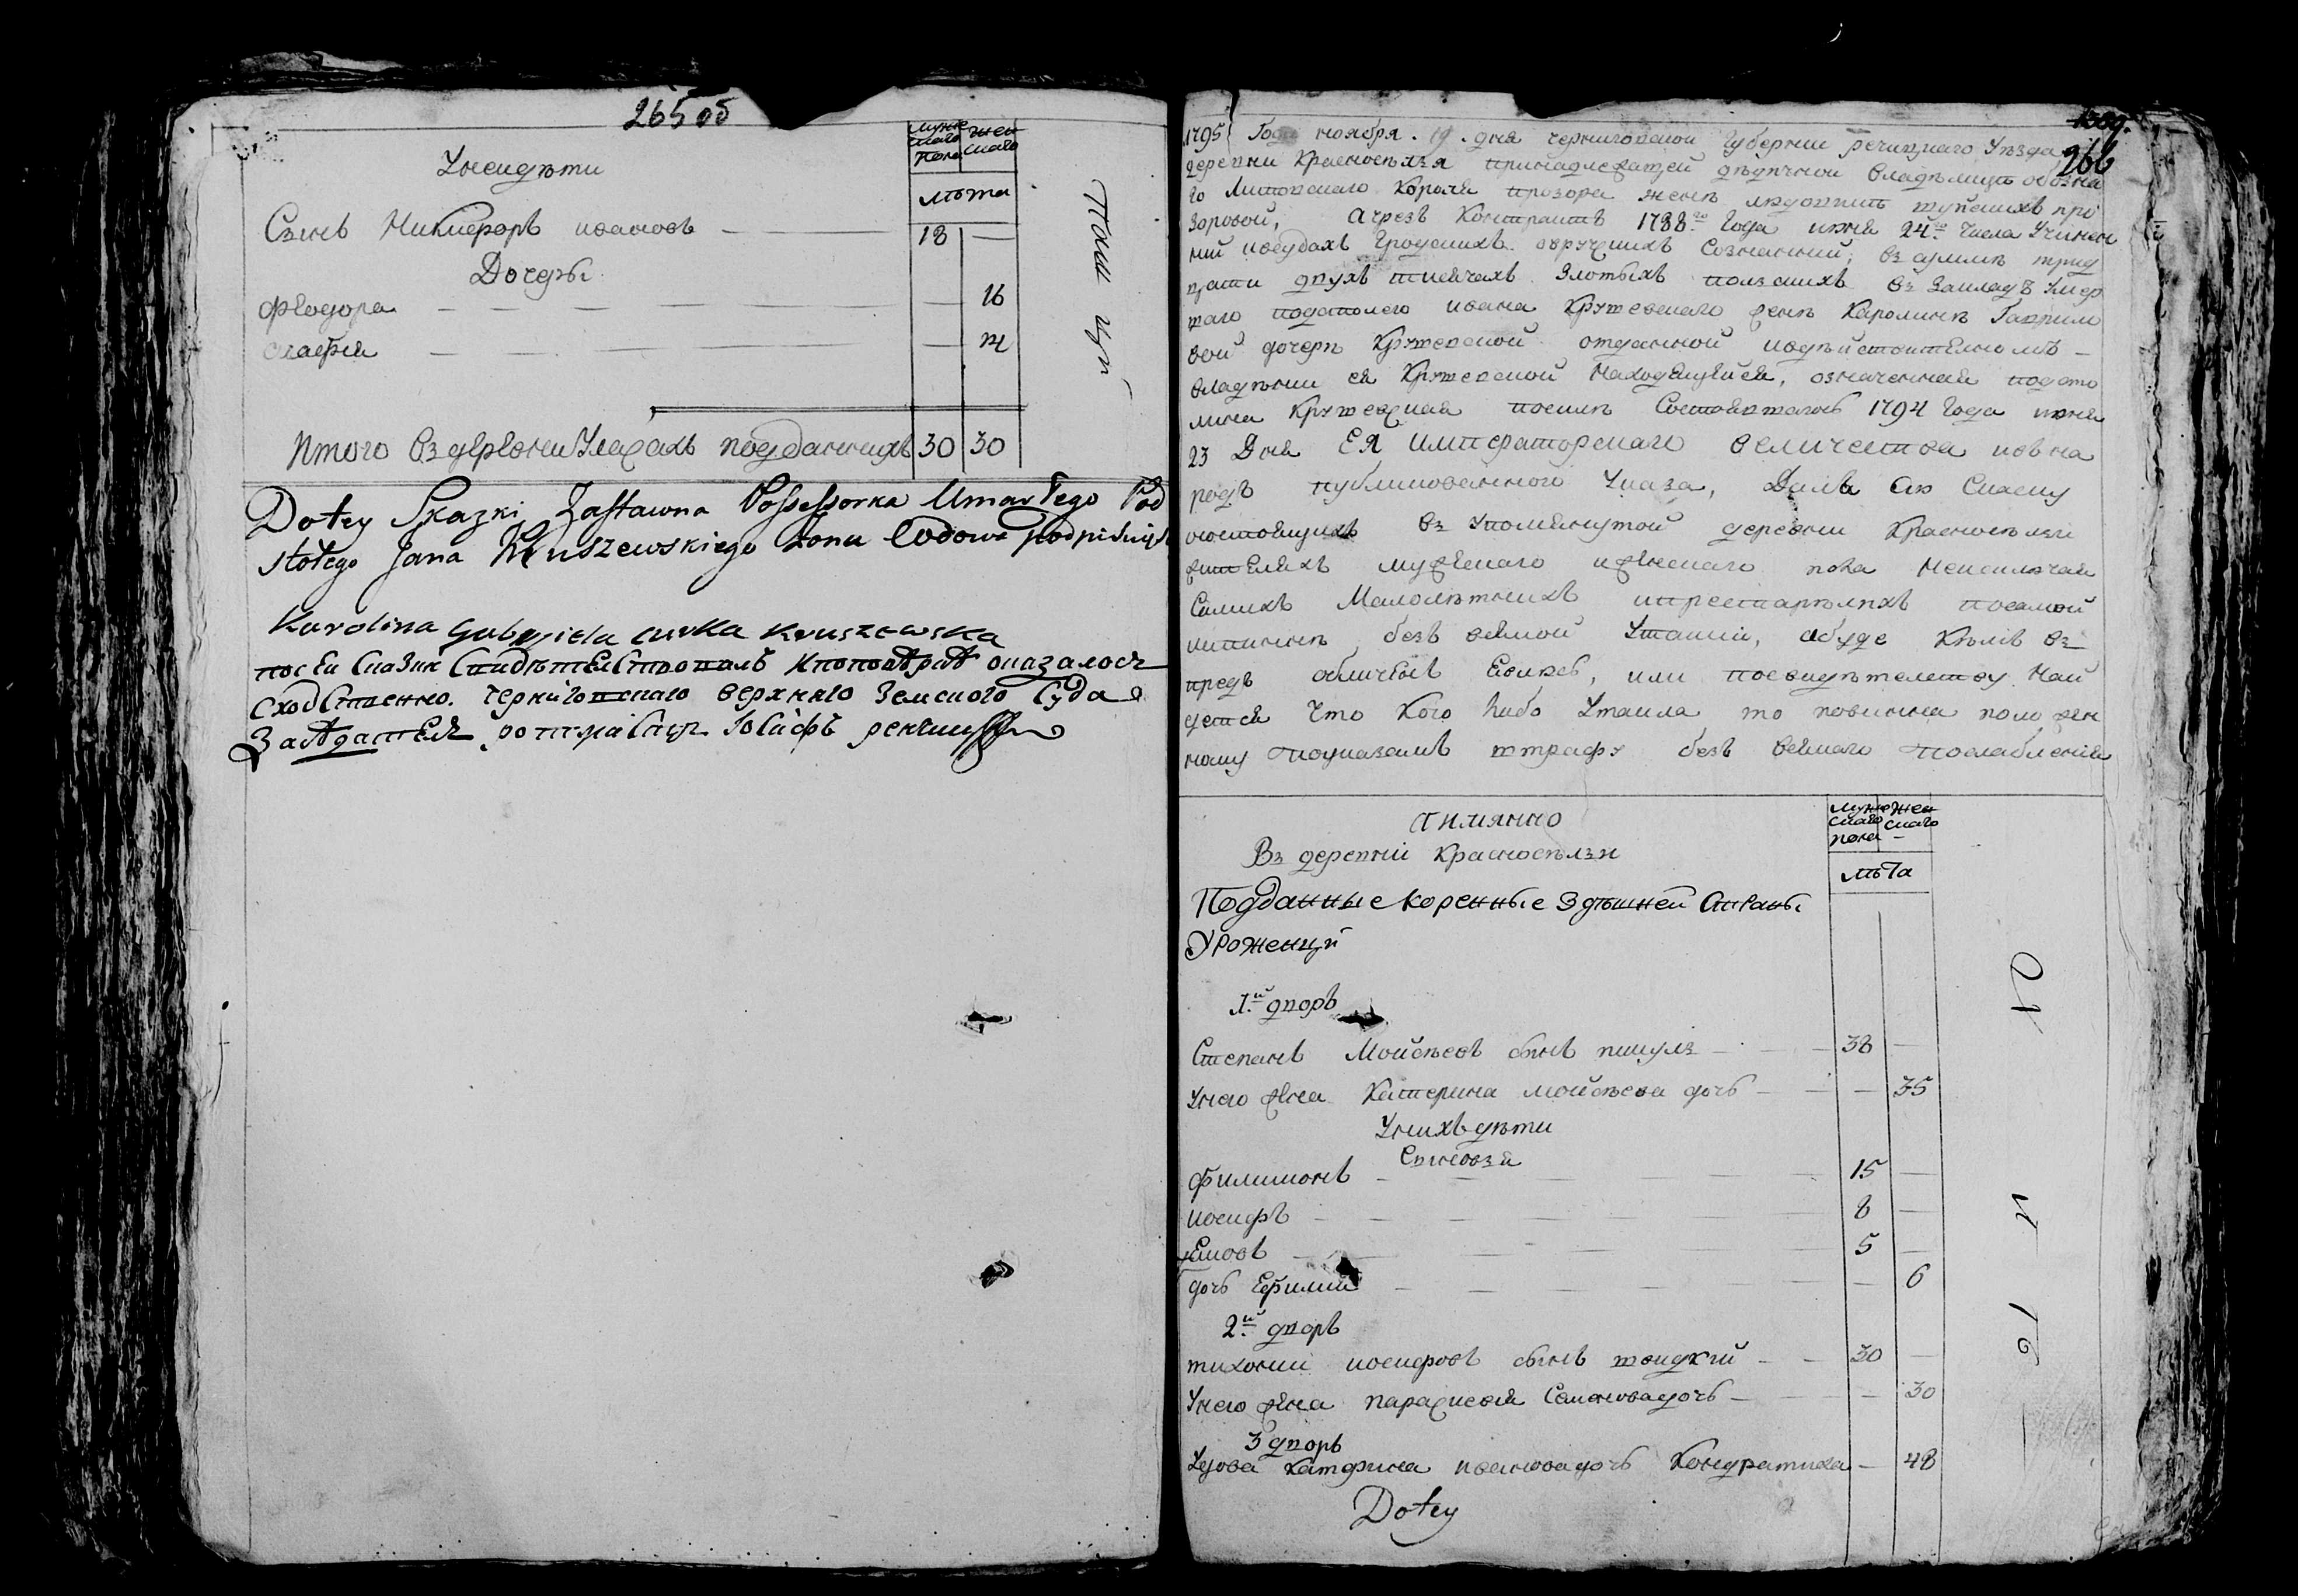 265 об
мужескаго пола
женскаго
лѣта
У ней дѣти
Сынъ Никифоръ ивановъ 18 —
Дочеры
Феодора — 16
итого въ деревни подданныхъ 30 30
Do tey Skazki Zastawna Possessorka Umarłego Pod
stolego Jana Kruszewskiego Żona Wdowa podpisuję
Karolina Gabryiela Kruszewska
по сей сказки свидетельствовалъ и по поверке оказалось
сходственно. черниговскаго верхняго земскаго суда
заседатель ротмистръ Иосифъ
266
1795 Года ноября 19 дня черниговской губернии речицкаго уѣзда
деревни Красноселля принадлежащей дѣдичной владѣлицы обозна
го Литовскаго Короля прозора жены людовики шуйскихъ про
зоровой, а чрезъ контрактъ 1788го Года июня 24го числа учинен
ний въ судахъ гродскихъ овручскихъ сознанний, въ суммѣ трид
цати двухъ тисячахъ злотыхъ полскихъ въ закладъ умер
шаго подстолего ивана Крушевскаго жене Каролине Гаврило
вой дочери Крушевской отданной и в действителномъ
владѣнии ея Крушевской находящуйся, означенная подсто
лина Крушевская по силе состоявшагось 1794 Года июня
23 Дня ЕЯ императорскаго величества и в на
родъ публикованного указа, Дала сию сказку
о состоящихъ въ упомянутой деревни Красноселли
жителяхъ мужескаго и женскаго пола не исключая
самихъ малолѣтнихъ и престарѣлихъ по самой
истиннѣ безъ всякой утайки, а буде кѣмъ в
предь обличенъ буду, или по свидѣтелству най
дется что кого либо утаила то повинна положен
ному по указамъ штрафу безъ всякаго послабления
мужескаго пола
женскаго
лѣта
А имянно
Въ деревни Красноселли
Подданные коренные здѣшней страны
Уроженци
1й дворъ
Степанъ Мойсѣевъ сынъ пикулъ 38 —
У него жена Катерина мойсѣева дочь — 35
У нихъ дѣти
Сыновья
Филимонъ 15 —
иосифъ 8 —
Яковъ 5 —
дочь Ефимия — 6
2й дворъ
тихоний иосифовъ сынъ 30 —
У него жена парасковия Семионова дочь — 30
3 дворъ
Удова Катерина иванова дочь Кондратиха — 48
Do tey